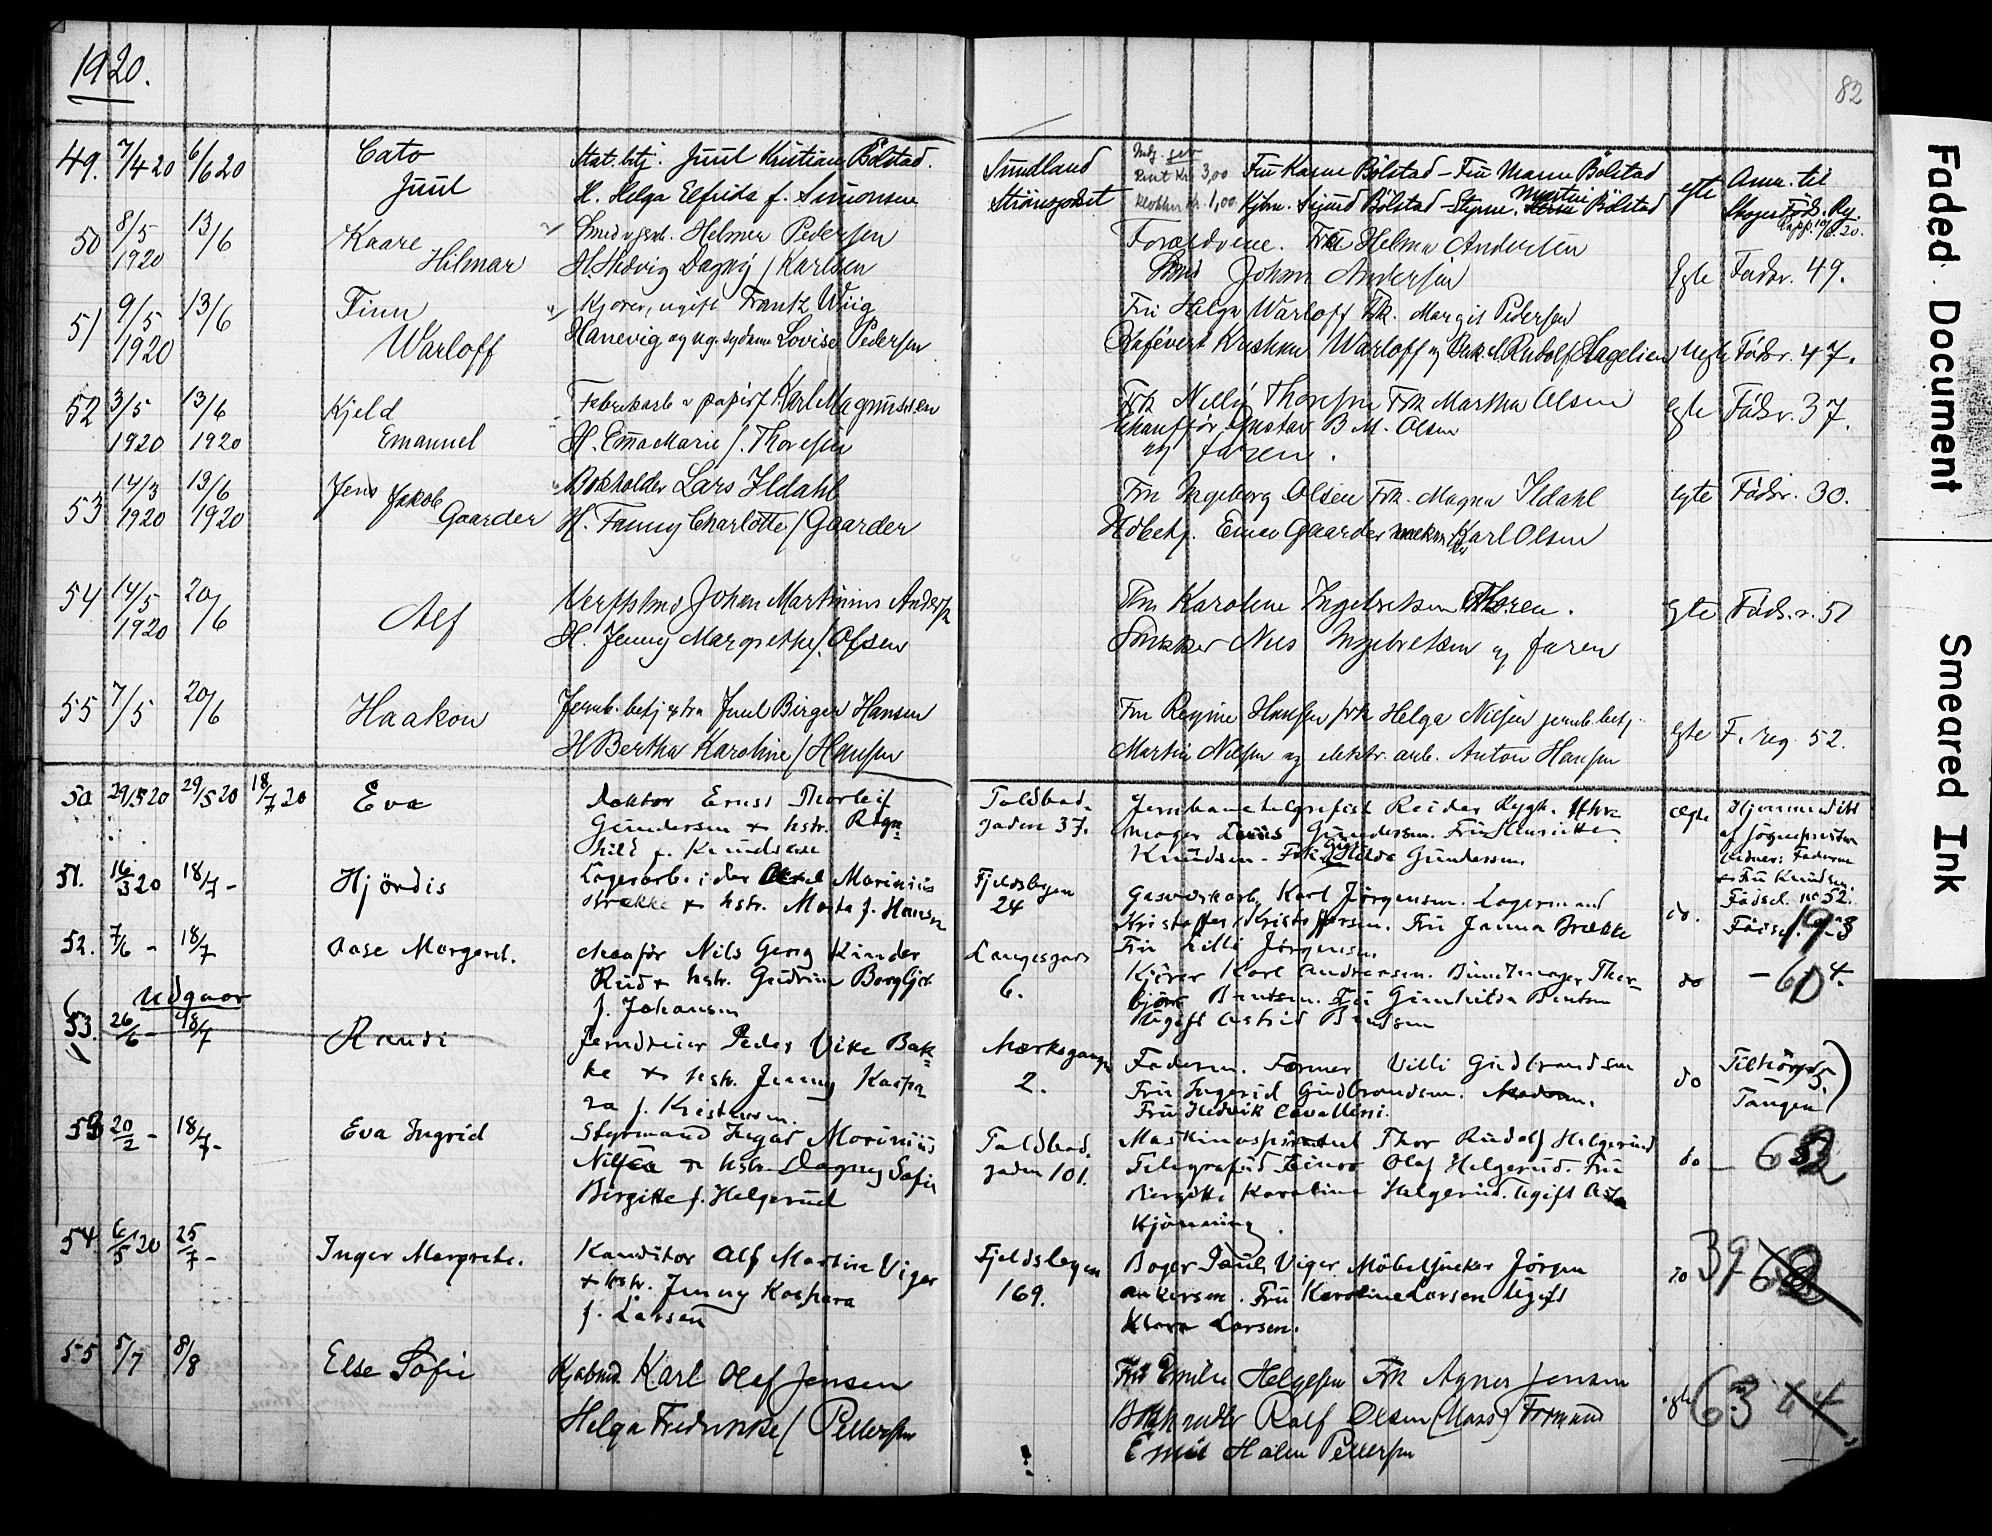 1920.
82
49. 7/4 20 6/6 20 Cato Juul
Stat. btj. Juul Kristian Bölstad.
H. Helga Elfrida f. Simonsen
Sundland
Strömsgodset
3,00
1,00
Fru Karen Bölstad - Fru Bölstad
Sigurd Bölstad - Bölstad
egte
Anm. til
Föds. Reg.
50 8/5 1920 13/6 Kaare Hilmar
Helmer Pedersen
H. Hedvig Dagny f Karlsen
Forældrene. Helma Andersen
Johan Andersen
Egte Fødsr. 49.
51 9/5 1920 13/6 Finn Warloff
Kjører, ugift Frantz Wiig
Hanevig og ug. Lovise Pedersen
Fru Helga Warloff Frk. Margit Pedersen
Kristian Warloff og Rudolf Hagelien
Uegte Fødsr. 47.
52 3/5 1920 13/6 1920 Kjeld Emanuel
Fabrikarb v papirf Karl Magnussen
H. Emma Marie f. Thoresen
Frk Nelly Thoresen Frk Martha Olsen
Chauffør Gustav B M. Olsen
og faren.
egte Fødsr. 37.
53 14/3 1920 13/6 1920 Jens Jakob Gaarder
Bokholder Lars Ildahl
H. Fanny Charlotte f Gaarder
Fru Ingeborg Olsen Frk. Magna Ildahl
Einar Gaarder Karl Olsen
egte Fødsr. 30.
54 14/5 1920 20/6 Alf
Johan Martinius Anders
H. Jenny Margrethe f. Olsen
Fru Karoline Ingebretsen
Snekker Ingebretsen og faren
Egte Føds.r. 51
55 7/5 20/6 Haakon
Jernb. betj extra Juul Birger Hansen
H Bertha Karoline f Hansen
Fru Regine Hansen frk Helga Nilsen jernb. betj.
Martin Nilsen og elektr. arb. Anton Hansen
egte F. reg. 52.
50 29/5 20 29/5 20 18/7 20 Eva
Doktor Ernst Thorleif
Gundersen + hstr. Ragn-
hild f. Knudsen
Toldbod-
gaden 37.
Jernbanetelgrafist Reidar Rygh. Uhr-
mager Gundersen. Fru Henriette
Knudsen - Frk. Hilda Gundersen.
Ægte
Hjemmedöbt
af sognepresten
Vidner: Faderen
+ Fru Knudsen.
Födsel. no 52.
51. 16/3 20 18/7 - Hjördis
Lagerarb. Marinius
Brække + hstr. Marta f. Hansen
Fjeldsbyen
24
Gasværkarb. Karl Jörgensen. Lagermand
Kristoffer Kristoffersen. Fru Janna Brække
Fru Lilli Jörgensen
do.
19 3
52. 7/6 - 18/7 Aase Margaret.
Nils Georg Kinder
Rud + hstr. Gudrun Borghjör
f. Johansen
Langesgade
6.
Kjörer Karl Andreassen. Bundtmager Thor-
björn Bentsen. Fru Gunhilda Bentsen
Ugift Astrid Bentsen
do - 60
Udgaar
53. 26/6 - 18/7 Randi
Jerndreier Peder Vike Bak-
ke + hstr. Jenny Kaspa-
ra f. Kristensen.
2.
Faderen. Farmer Villi Gudbrandsen
Fru Ingerid Gudbrandsen.
Fru Hedvik Cavallessi.
do
Tilhörer
Tangen
53 20/2 - 18/7 - Eva Ingrid
Styrmand Ingar Marinius
Nilsen + hstr. Dagny Sofie
Birgitte f. Helgerud
Toldbod.
gaden 101.
Thor Rudolf Helgerud
Telegrafist Olaf Helgerud. Fru
Birgitte Karoline Helgerud. Ugift
Kjönning.
do - 62
54 6/5 20 25/7 - Inger Margrete.
Konditor Alf Martin Viger
+ hstr. Jenny Kaspara
f. Larsen
Fjeldsbyen
169.
Bager Paul Viger Möbelsnekker Jörgen
Ankersen. Fru Karoline Larsen Ugift
Klara Larsen.
do 39
55 5/7 8/8 Else Sofie
Kjøbmd. Karl Olaf Jensen
Helga Fredrikke f Pettersen
Fru Emilie Helgesen Frk Agnes Jensen
Rolf Olsen (Moss) Formand
Emil Holm Pettersen
egte 63 44
Faded Document
Smeared Ink